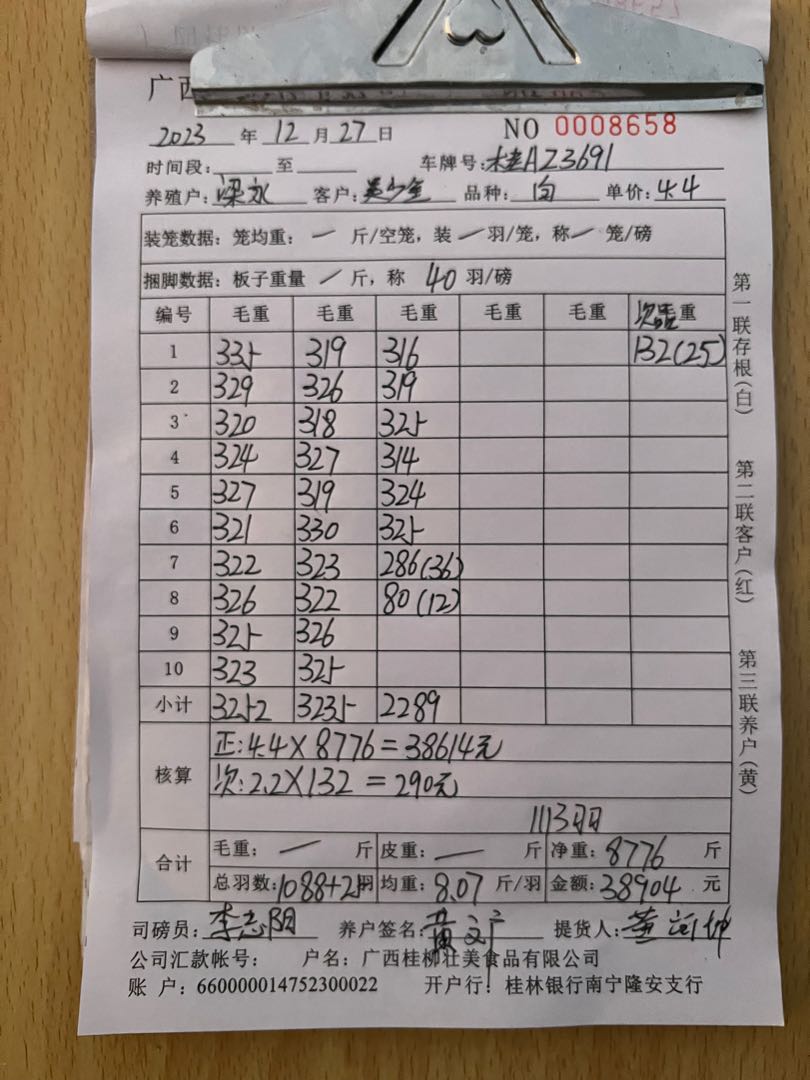 广西
2023 年 12 月 27 日 NO 0008658
时间段: 至 车牌号: 桂AZ3691
养殖户: 梁永 客户: 品种: 白 单价: 4.4
装笼数据: 笼均重: — 斤/空笼, 装 — 羽/笼, 称 — 笼/磅
捆脚数据: 板子重量 — 斤, 称 40 羽/磅
编号 毛重 毛重 毛重 毛重 毛重 次 重
1 335 319 316 132(25)
2 329 326 319
3 320 318 325
4 324 327 314
5 327 319 324
6 321 330 325
7 322 323 286(36)
8 326 322 80(12)
9 325 326
10 323 325
小计 3252 3235 2289
核算 正:4.4×8776=38614元
次:2.2×132=290元
1113羽
合计 毛重: — 斤 皮重: — 斤 净重: 8776 斤
总羽数: 1088+25羽 均重: 8.07 斤/羽 金额: 38904 元
司磅员: 李志阳 养户签名: 黄文广 提货人: 黄
公司汇款帐号: 户名: 广西桂柳壮美食品有限公司
账 户: 660000014752300022 开户行: 桂林银行南宁隆安支行
第一联存根(白)
第二联客户(红)
第三联养户(黄)